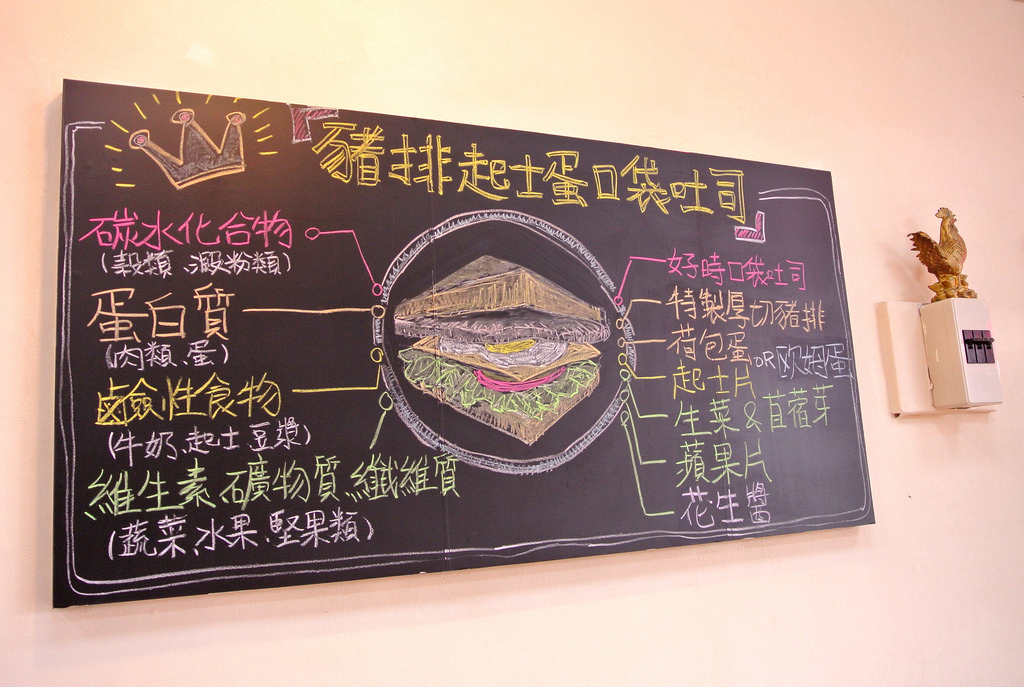 「豬排起士蛋口袋吐司」
碳水化合物
(穀類、澱粉類)
蛋白質
(肉類、蛋)
鹵鹼性食物
(牛奶、起士、豆漿)
維生素、礦物質、纖維質
(蔬菜、水果、堅果類)
好時口袋吐司
特製厚切豬排
荷包蛋OR歐姆蛋
起士片
生菜&苜蓿芽
蘋果片
花生醬